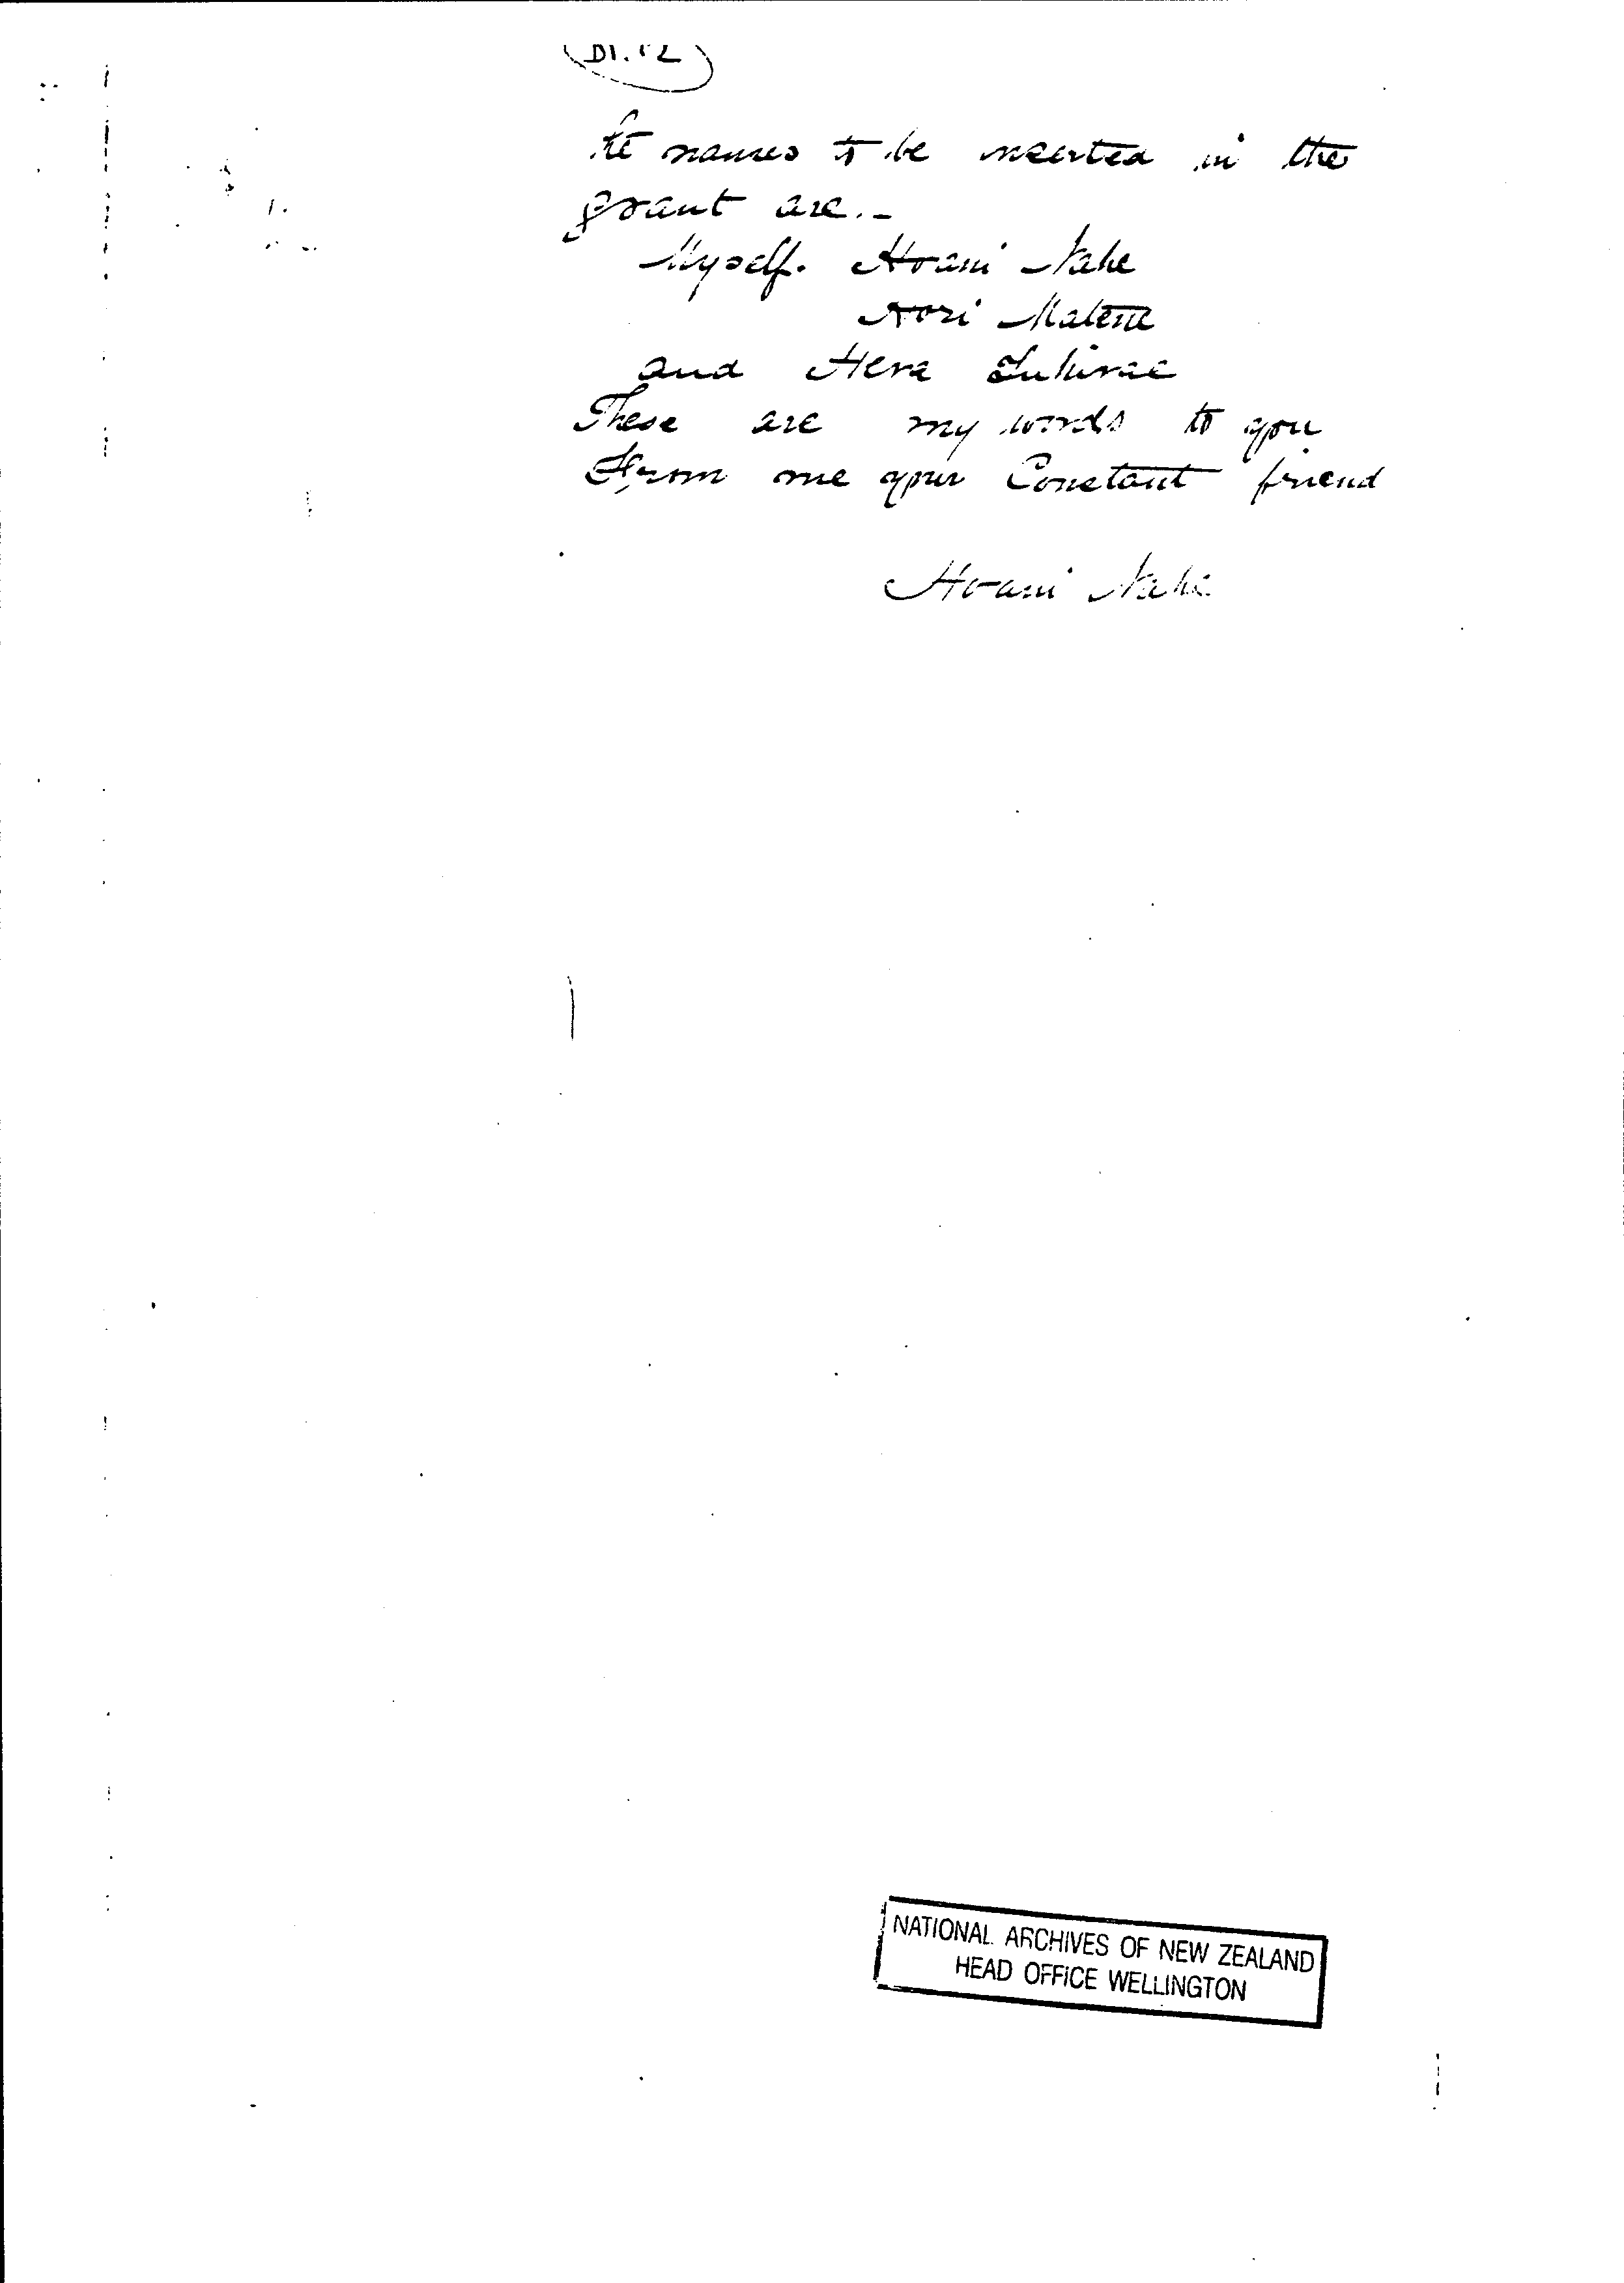 D1.12
The names to be inserted in the
grant are.-
Myself. Hoani Nahe
Hori Matene
and Hera
These are my words to you
From me your Constant friend
Hoani Nahe
NATIONAL ARCHIVES OF NEW ZEALAND
HEAD OFFICE WELLINGTON